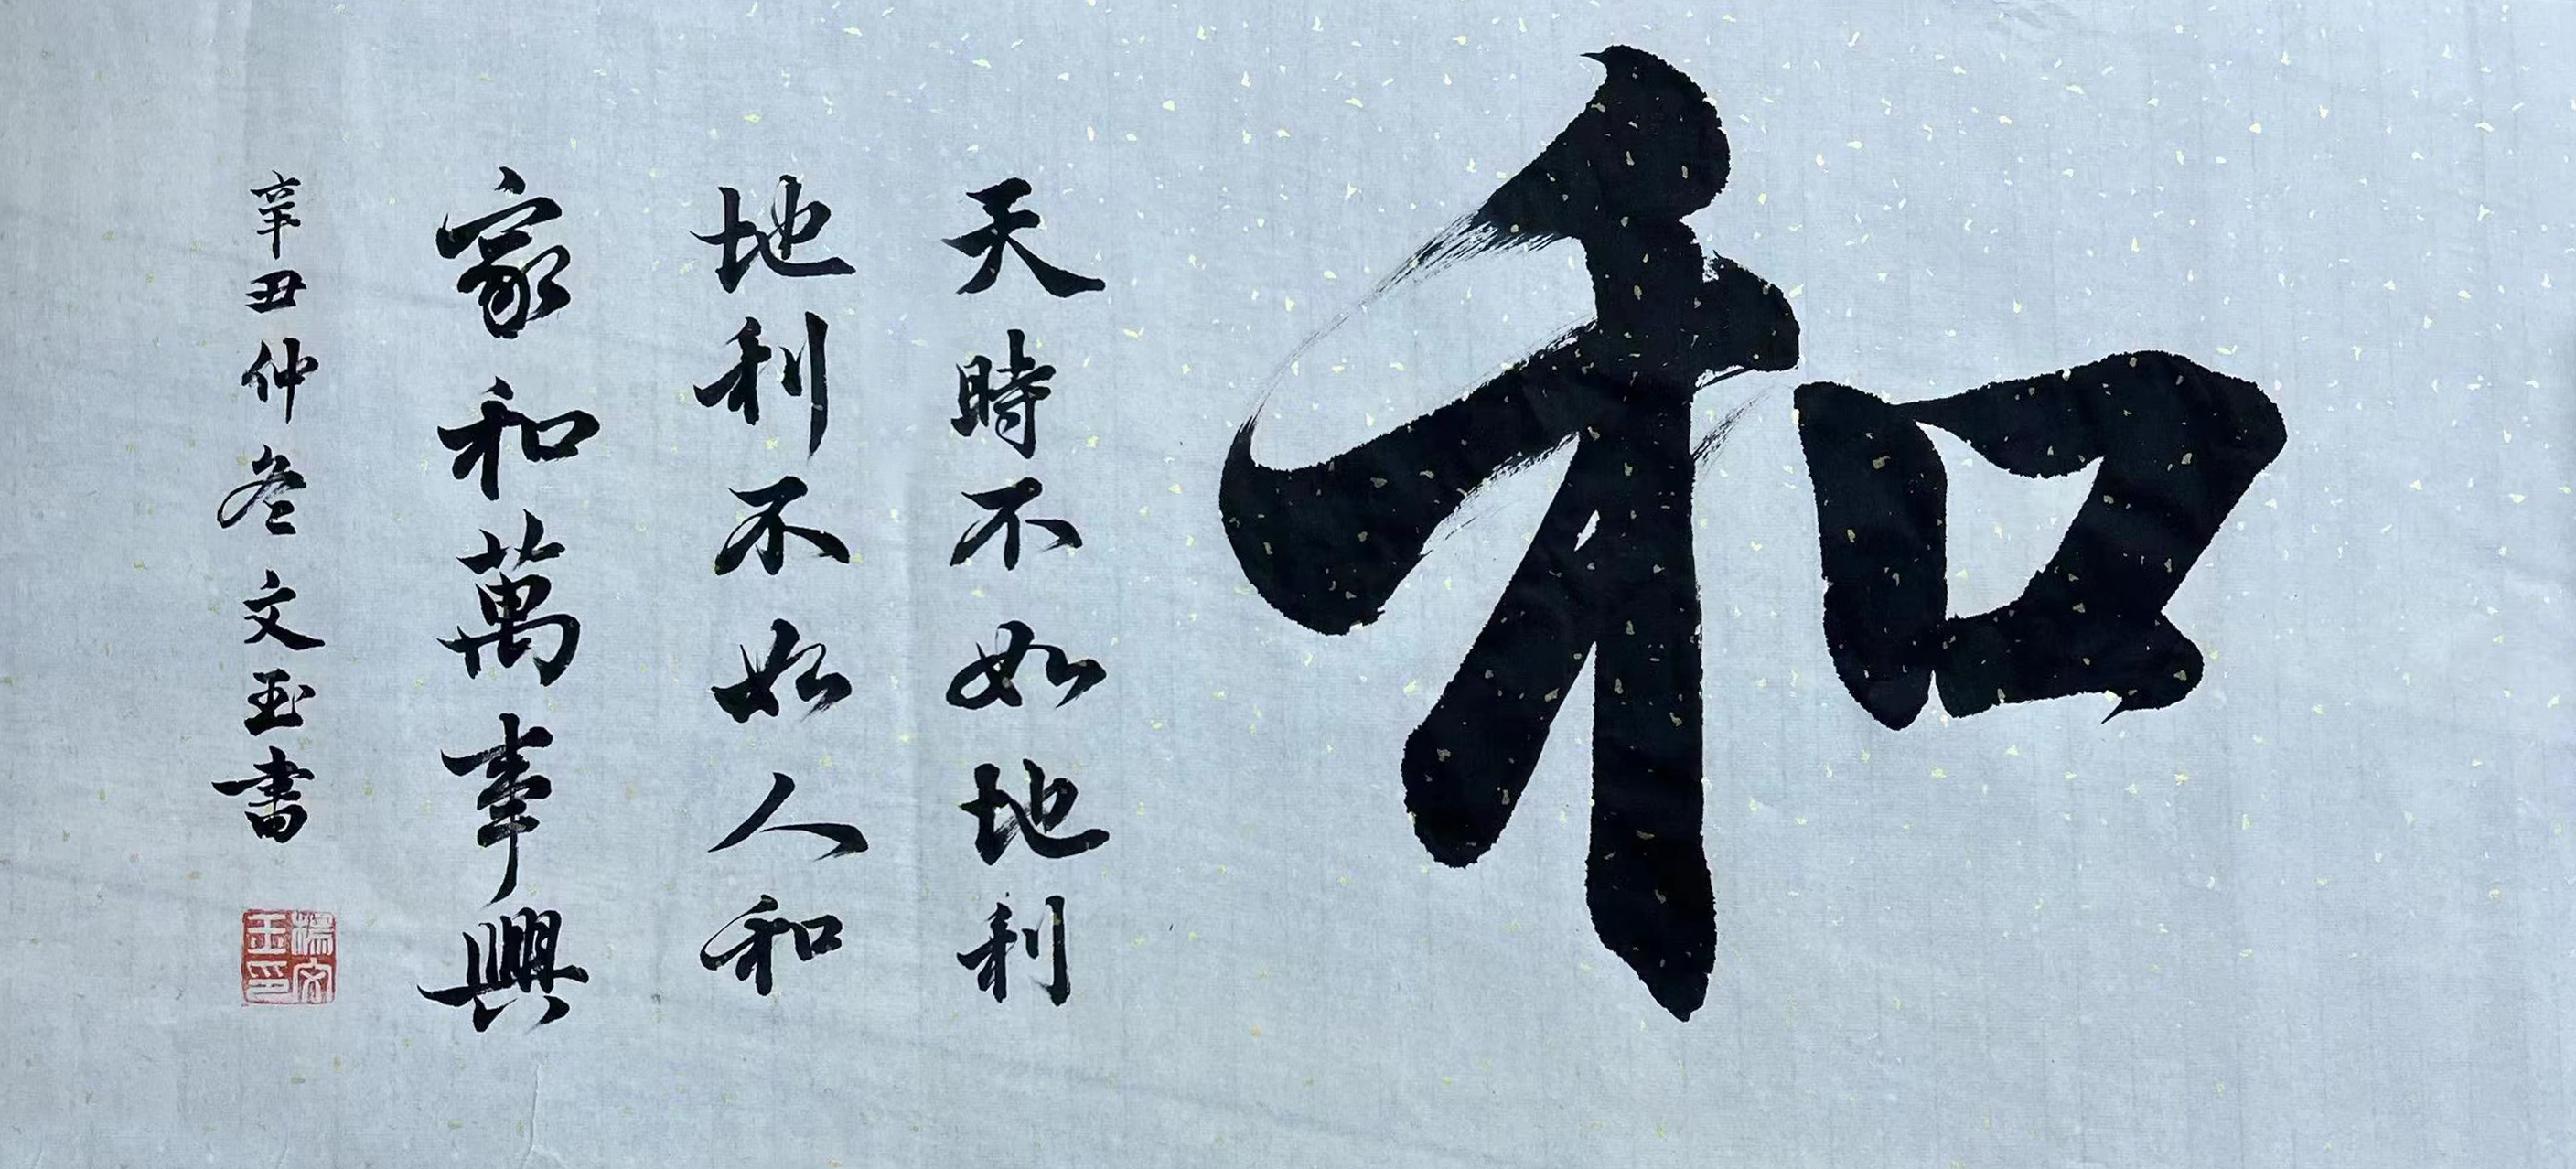 和
天時不如地利
地利不如人和
家和萬事興
辛丑仲冬文玉書
楊文玉印